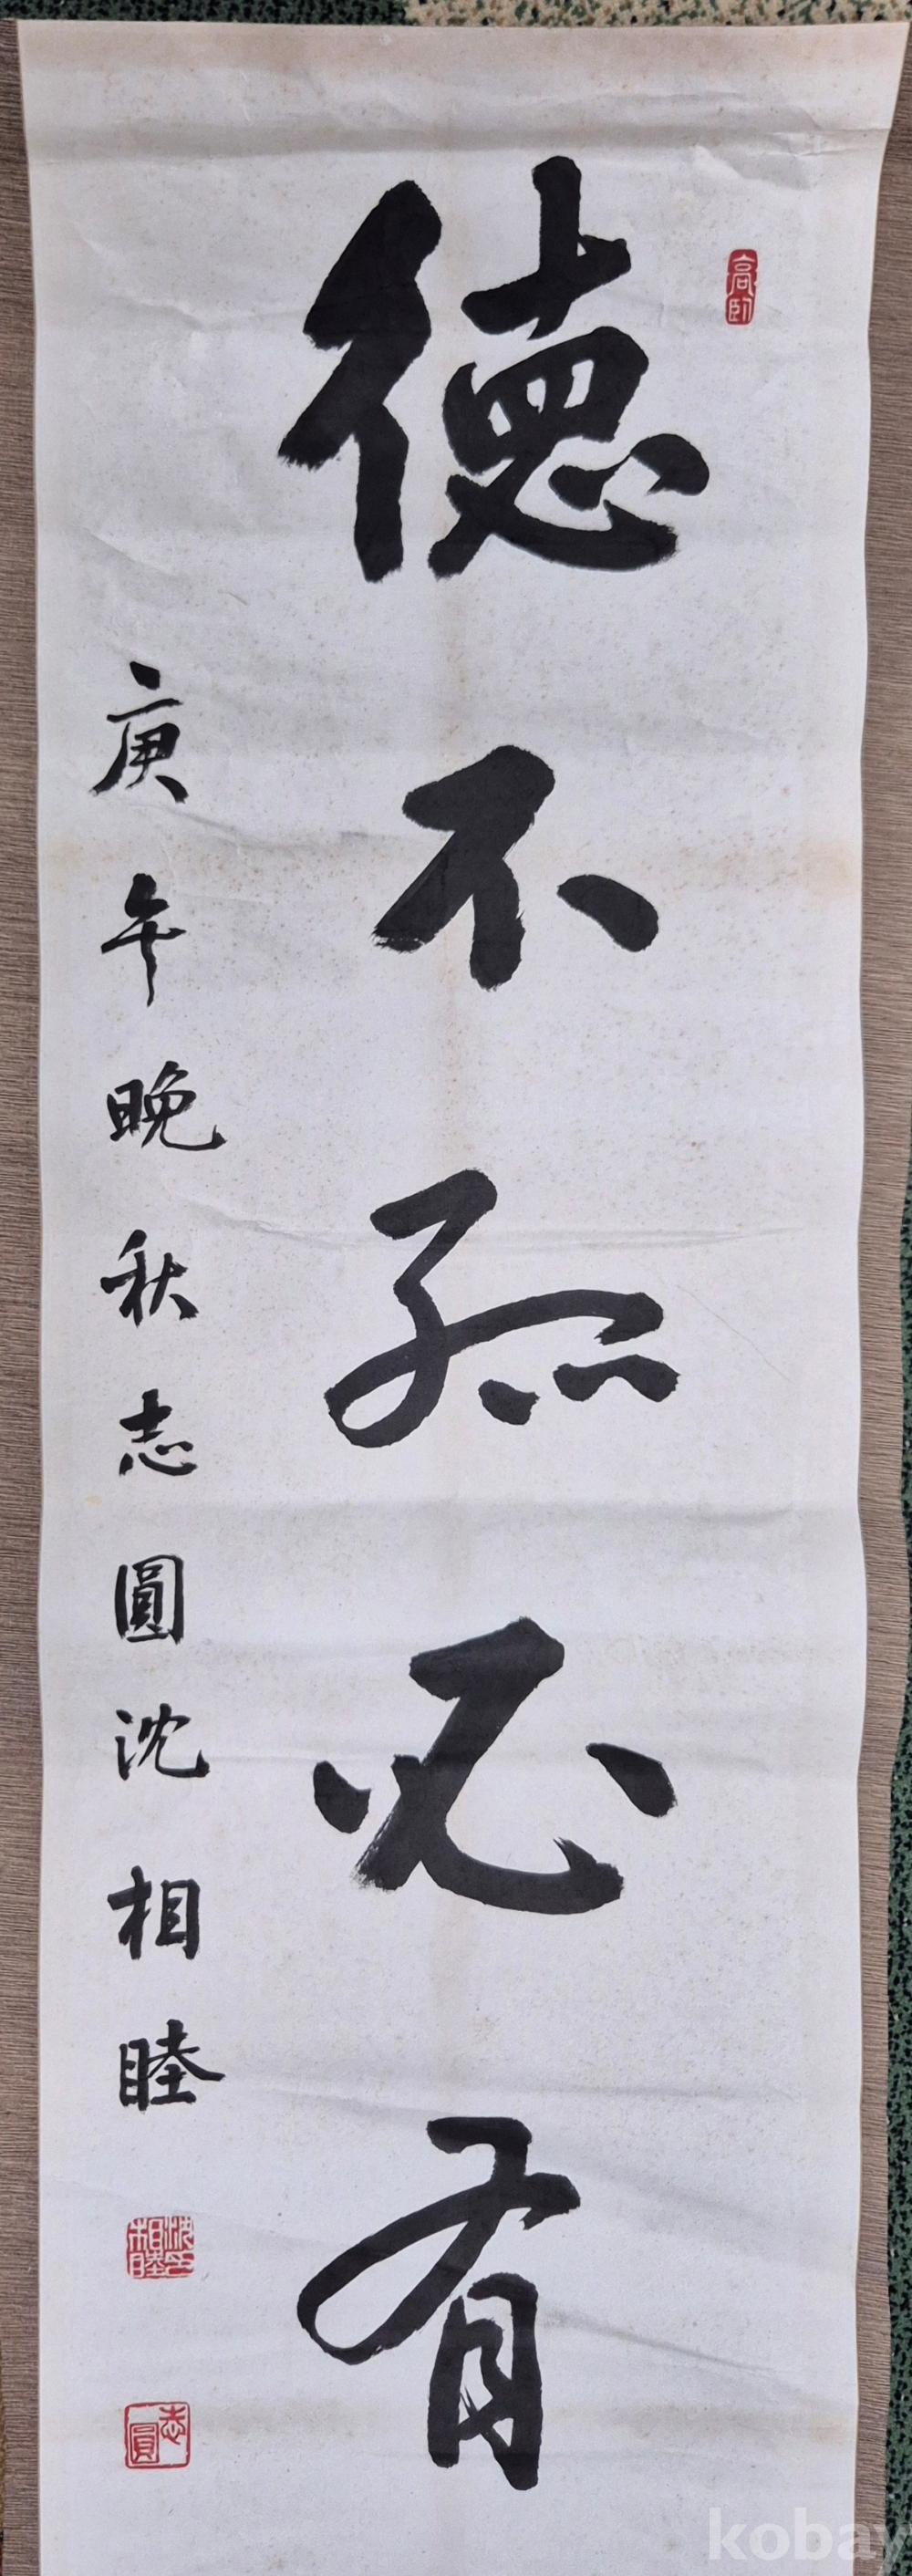 高臥
德不孤必有
庚午晚秋志圓沈相睦
沈相睦印
志圓
kobay